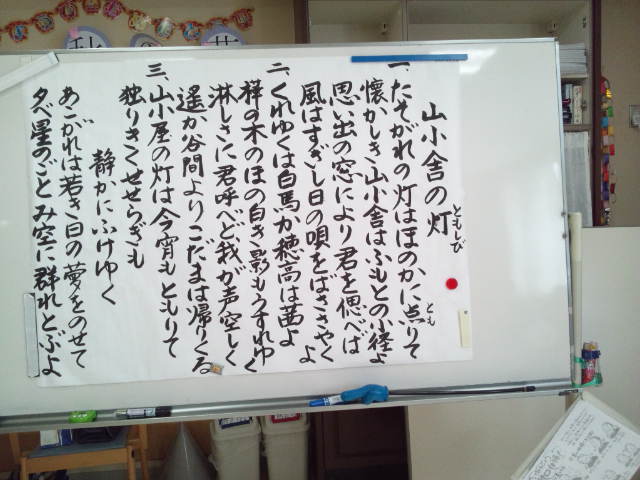 山小舎の灯
ともしび
一、たそがれの灯はほのかに点りて
とも
懐かしき山小舎はふもとの小径よ
思い出の窓により君を偲べば
風はすぎし日の唄をばささやくよ
二、くれゆくは白馬か穂高は茜よ
樺の木のほの白き影もうすれゆく
淋しさに君呼べど我が声空しく
遥か谷間よりこだまは帰りくる
三、山小屋の灯は今宵もともりて
独りきくせせらぎも
静かにふけゆく
あこがれは若き日の夢をのせて
夕べ星のごとみ空に群れとぶよ